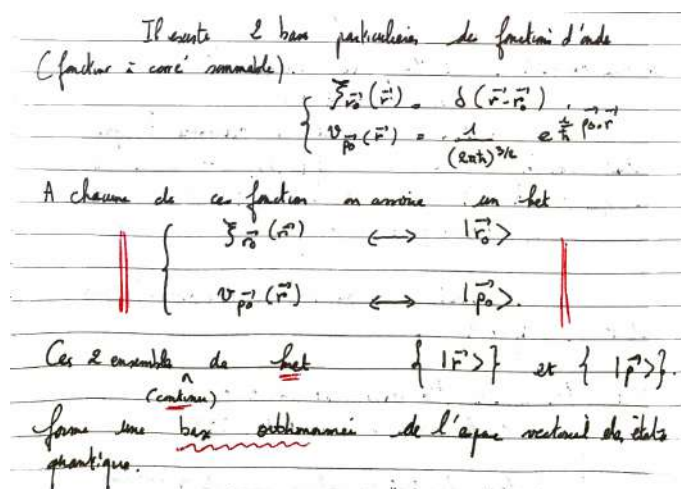 Il existe 2 bases particulières de fonctions d'onde
(fonction à carré sommable).
ξ_{r₀⃗}(r⃗) = δ(r⃗-r₀⃗)
v_{p₀⃗}(r⃗) = 1/(2πħ)^{3/2} e^{i/ħ p₀⃗.r⃗}
A chacune de ces fonction on associe un ket
ξ_{r₀⃗}(r⃗) ⟷ |r₀⃗>
v_{p₀⃗}(r⃗) ⟷ |p₀⃗>.
Ces 2 ensemble de ket { |r⃗>} et { |p⃗>}.
(continu)
forme une base orthonormée de l'espace vectoriel des états
quantique.